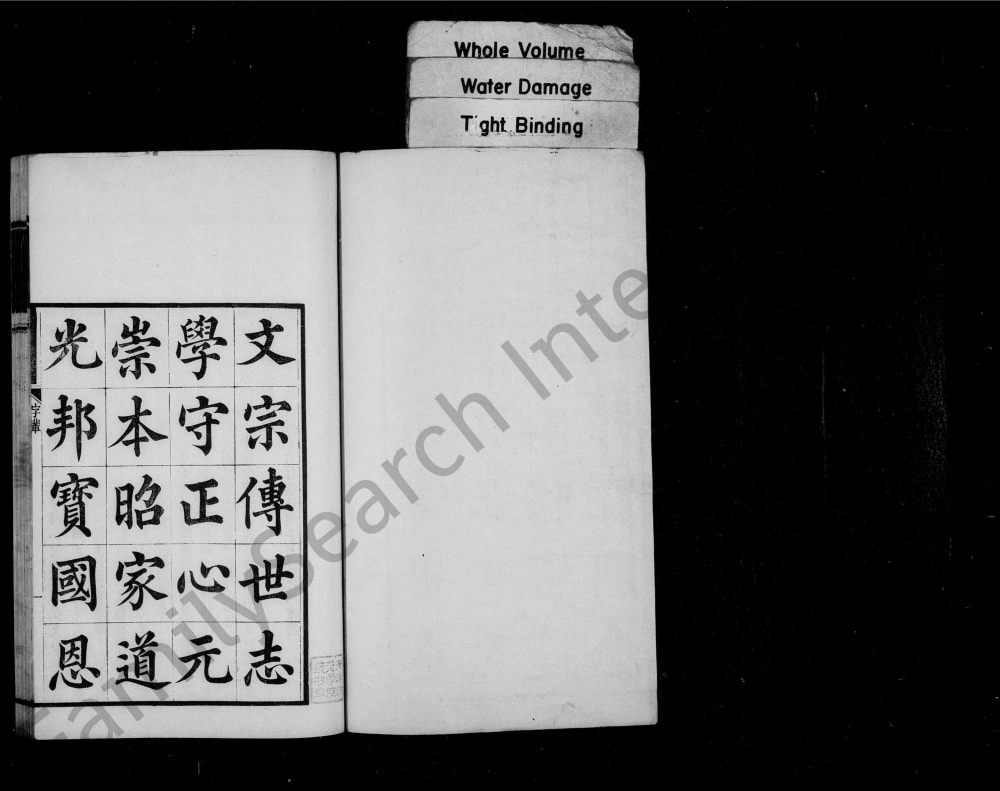 Whole Volume
Water Damage
Tight Binding
文宗傳世志
學守正心元
崇本昭家道
光邦寶國恩
字輩
FamilySearch Inte